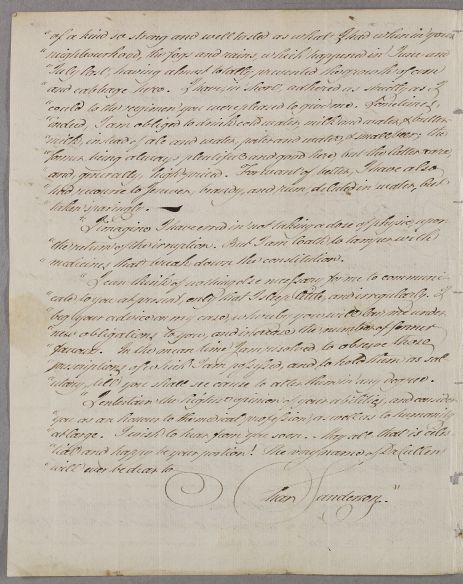 "of a kind so strong and well tasted as what I had when in your
"neighbourhood, the fogs and rains, which happened in June and
"July last, having almost totally prevented the growth of corn
"and cabbage here. I have, in short, adhered as strictly as I
"could to the regimen you were pleased to give me. Sometimes,
"indeed, I am obliged to drink cold water, milk and water, & butter-
"milk, instead of ale and water, porter and water, & small beer; the
"former being always plentiful and good here, but the latter rare,
"and generally high-priced. For want of better, I have also
"had recourse to brandy, and rum, diluted in water, but
"taken sparingly.
"I imagine I have erred in not taking a dose of physic, upon
"the return of the irruption. But I am loath to tamper with
"medicines that break down the constitution.
"I can think of nothing else necessary for me to communi-
"cate to you at present, only that I sleep little, and irregularly. I
"beg your advice on my case, whereby you will low me under
"new obligations to you, and increase the number of former
"favours. In the mean time I am resolved to observe those
"prescriptions of which I am possessed, and to hold them as salu-
"tary, till you shall see cause to alter them in any degree.
"I entertain the highest opinion of your abilities, and consider
"you as an honour to the medical profession, as well as to humanity
"at large. I wish to hear from you soon. May all that is
"and happy be your portion! The very name of Dr Cullen
"will ever be dear to
Chars Sanderson."